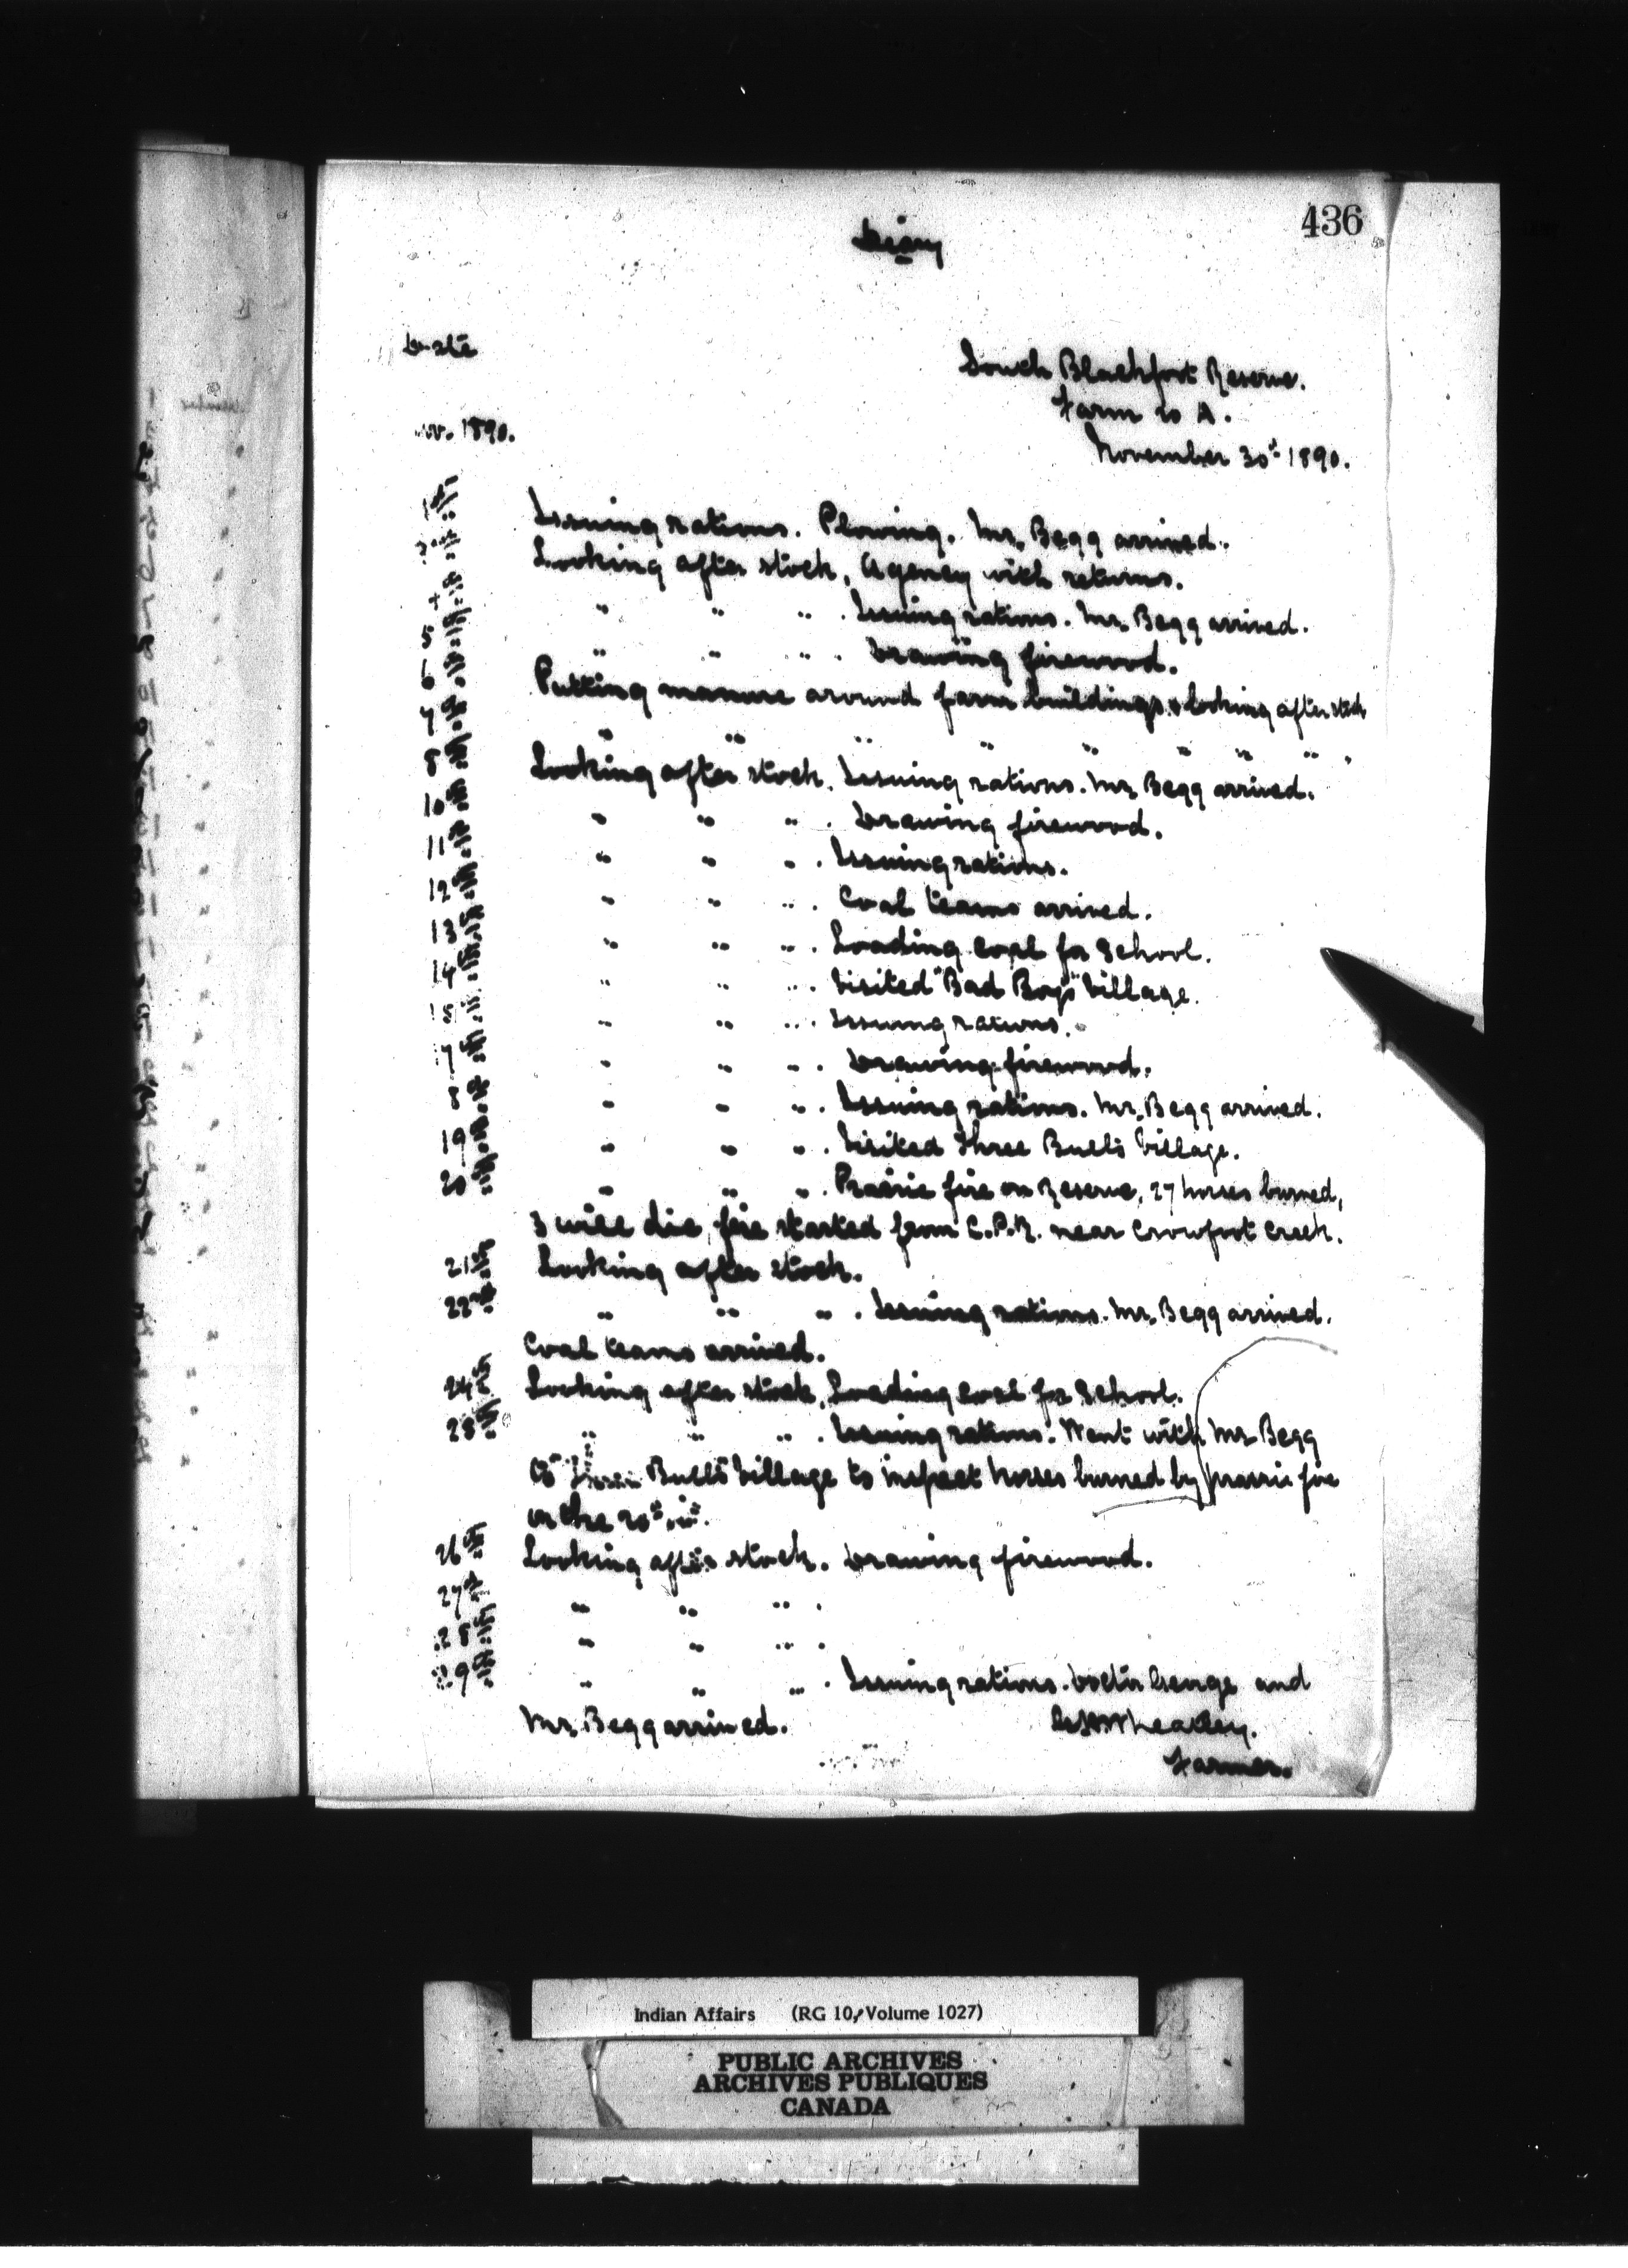 436
Diary
Date
South Blackfoot Reserve.
Farm 20 A.
1890.
November 30th 1890.
1st Issuing rations. Plowing. Mr. Begg arrived.
Looking after stock, Agency with returns.
" " " . Issuing rations. Mr. Begg arrived.
" " " . Drawing firewood.
Putting manure around farm buildings & looking after stock
" " " " " " " "
8th Looking after stock. Issuing rations. Mr. Begg arrived.
10th " " " . Drawing firewood.
11th " " " . Issuing rations.
12th " " " . Coal teams arrived.
13th " " " . Loading coal for School.
14th " " " . Visited "Bad Boys" Village.
15th " " " . Issuing rations.
17th " " " . Drawing firewood.
18th " " " . Issuing rations. Mr. Begg arrived.
19th " " " . Visited Three Bulls Village.
20th " " " . Prairie fire on Reserve, 27 horses burned,
3 will die, fire started from C.P.R. near Crowfoot Creek.
21st Looking after stock.
22nd " " " . Issuing rations. Mr. Begg arrived.
Coal teams arrived.
24th Looking after stock, Loading coal for School.
25th " " " . Issuing rations. Went with Mr Begg
to Bulls Village to inspect horses burned by prairie fire
on the 20th
26th Looking after stock. Drawing firewood.
27th " " " .
28th " " " .
29th " " " . Issuing rations. Doctor George and
Mr. Begg arrived. Wheatley.
Farmer.
Indian Affairs (RG 10, Volume 1027)
PUBLIC ARCHIVES
ARCHIVES PUBLIQUES
CANADA